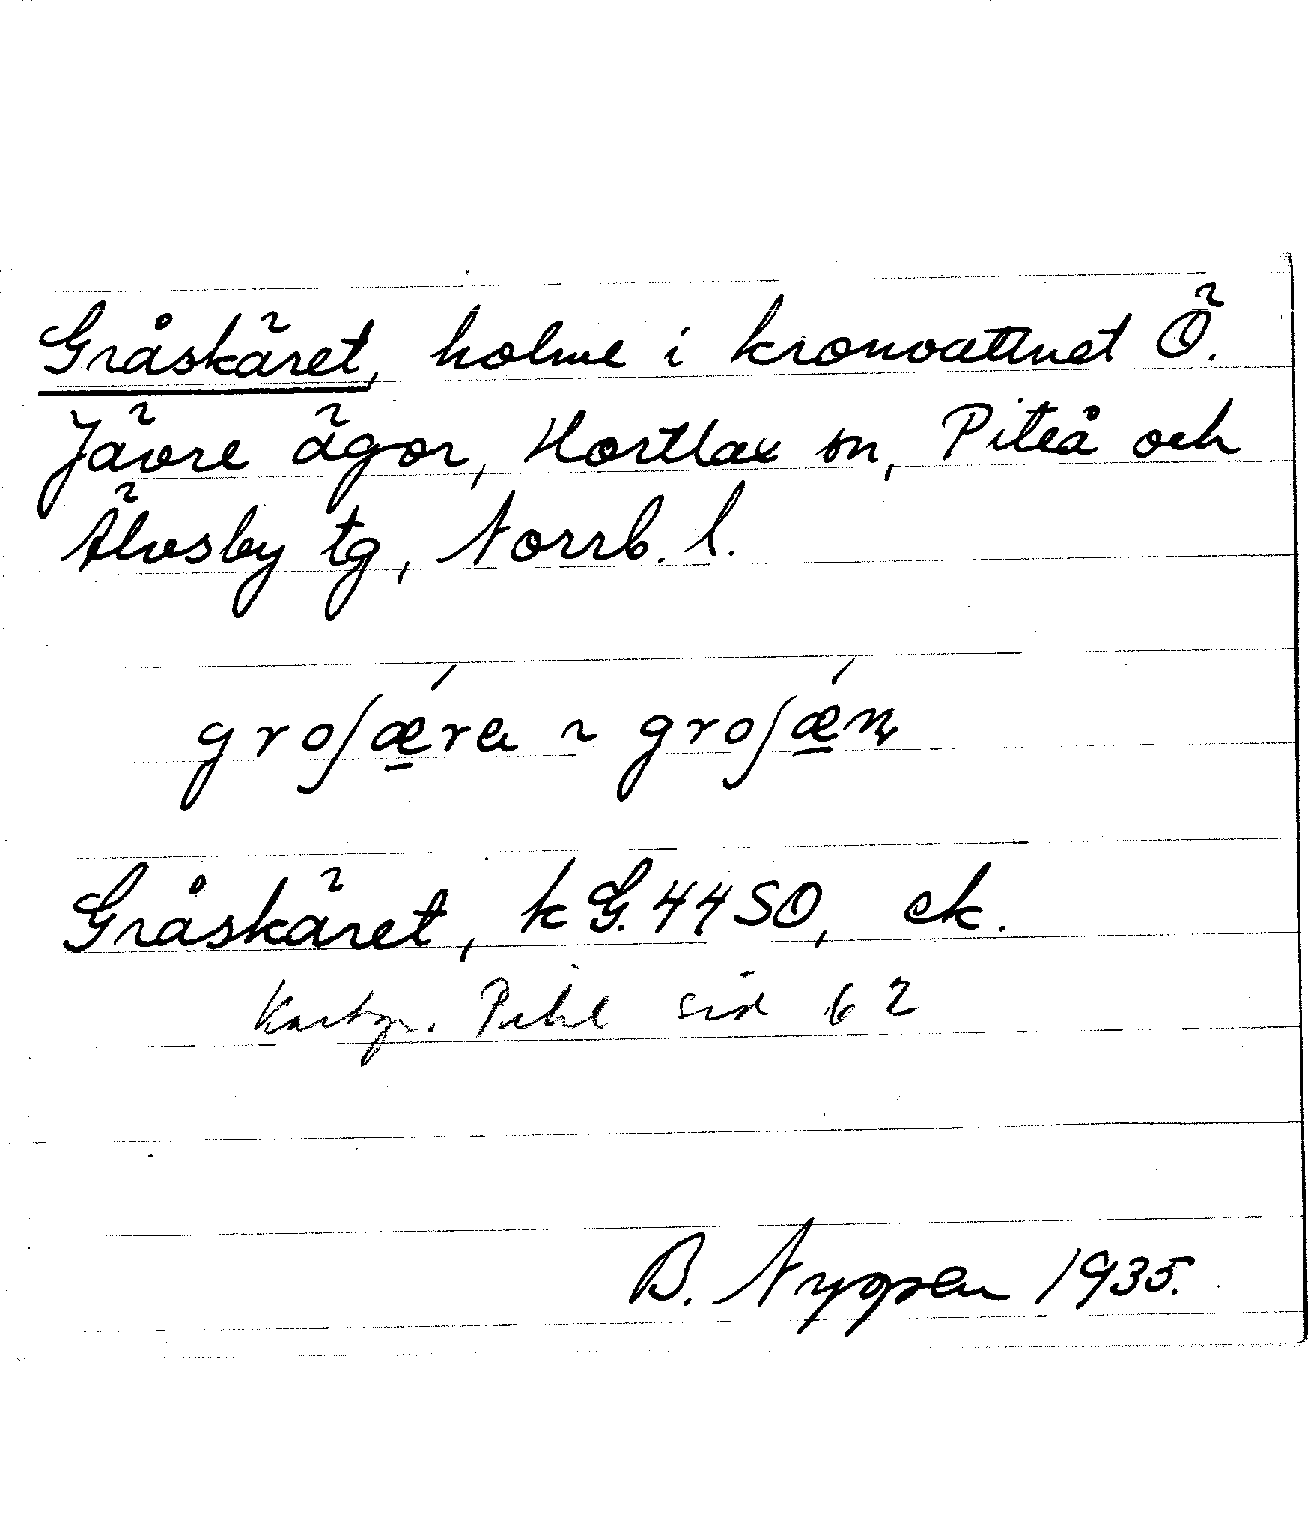 Gråskäret, holme i kronovattnet Ö.
Jävre ägor, Hortlax sn, Piteå och
Älvsby tg, Norrb. l.
groʃǽ̠ra ~ groʃǽ̠ɳ
Gråskäret, kG.44SO, ek.
sid 62
B. Nygren 1935.